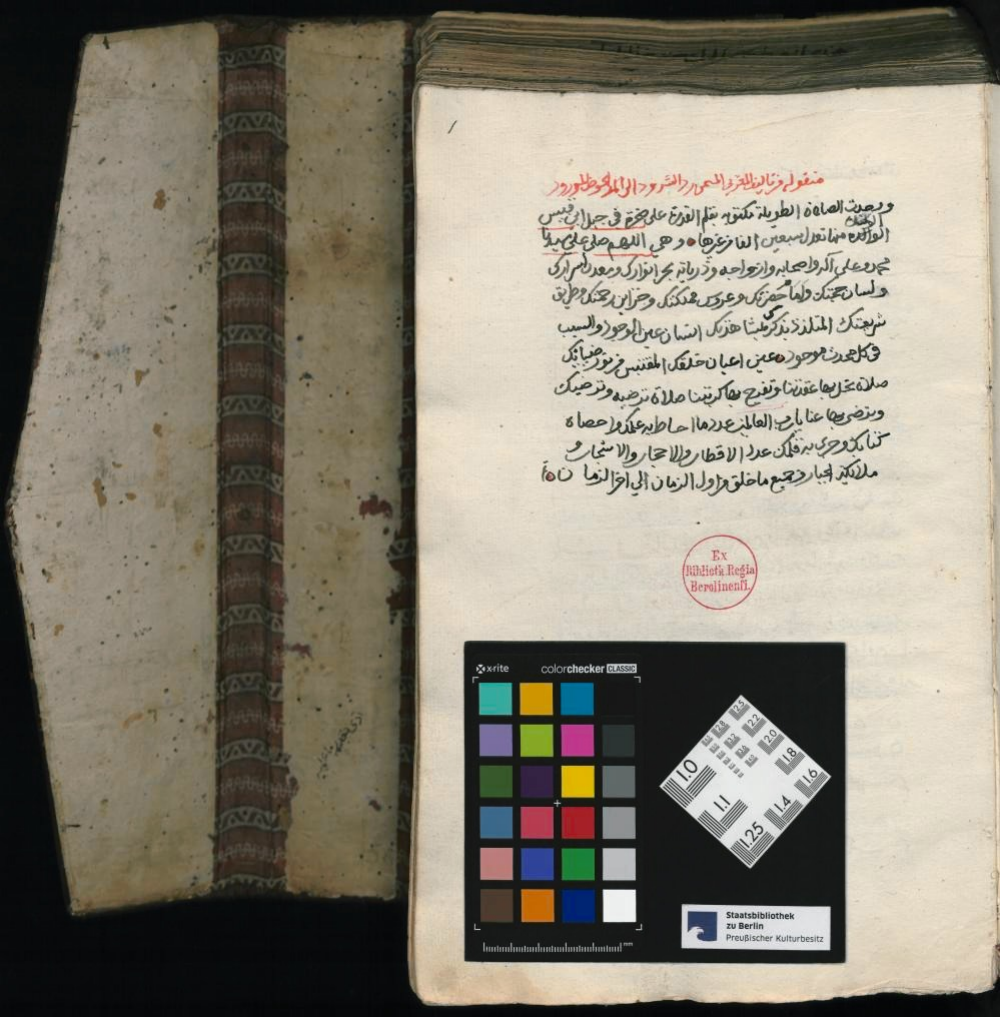 منقوله من تاليف المغربي المسمى رد الشرود الى المحوض المورود
وجدت الصلاة الطويلة مكتوبه بقلم القدرة على صخرة في جبل ابي قبيس
الواحده منها تعدل سبعين الفا من غيرها وهي اللهم صلي على سيدنا
محمد وعلى آله واصحابه وازواجه وذرياته بحر انوارك ومعدن اسرارك
ولسان حجتك وامام حضرتك وعروس مملكتك وخزاين رحمتك وطريق
شريعتك المتلذذ بذكرك بمشاهدتك انسان عين الوجود والسبب
في كل موجود عين اعيان خلقك المقتبس من نور ضيائك
صلاة تحل بها عقدتنا وتفرج بها كربتنا صلاة ترضيه وترضيك
وترضى بها عنا يا رب العالمين عدد ما احاط به علمك واحصاه
كتابك وجرى به قلمك عدد الاقطار والاحجار والاشجار و
ملائكة البحار وجميع ما خلق من اول الزمان الى اخر الزمان
Ex
Biblioth. Regia
Berolinenſi.
x·rite colorchecker CLASSIC
mm
2.5
2.8
2.2
2.0
1.8
1.6
1.0
1.1
1.4
1.25
Staatsbibliothek
zu Berlin
Preußischer Kulturbesitz